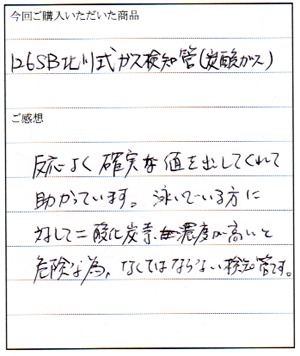 今回ご購入いただいた商品
126SB北川式ガス検知管(炭酸ガス)
ご感想
反応よく確実な値を出してくれて
助かっています。泳いでいる方に
対して二酸化炭素濃度が高いと
危険な為、なくてはならない検知管です。